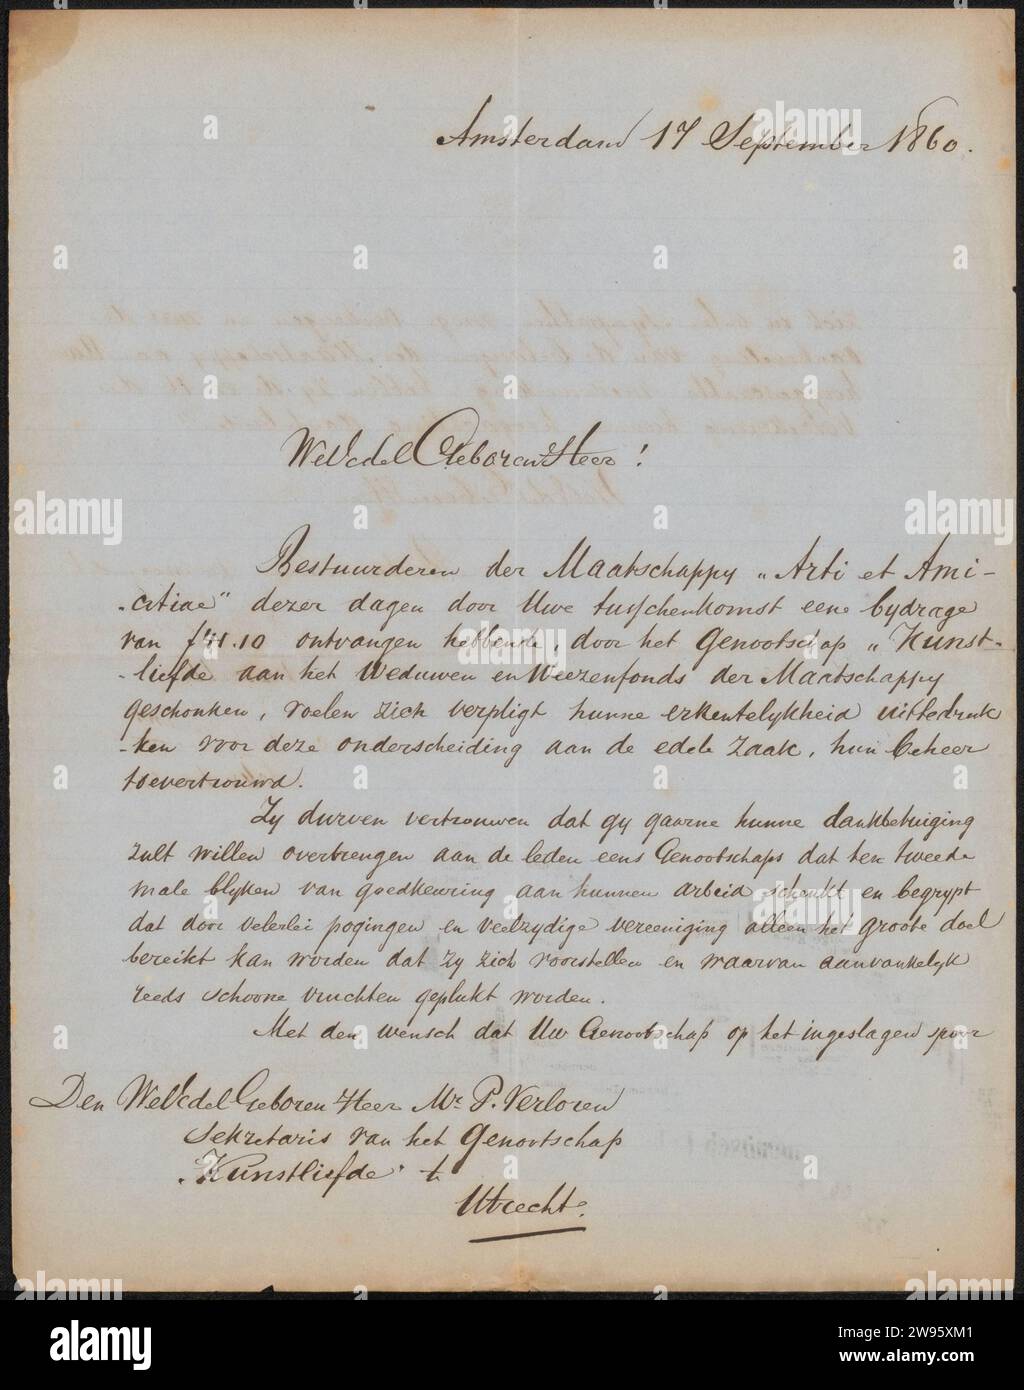 Amsterdam 17 September 1860.
WelEdelGeboren Heer!
Bestuurderen der Maatschappy "Arti et Ami-
-citiae" dezer dagen door Uwe tusschenkomst eene bydrage
van f 41.10 ontvangen hebbende, door het Genootschap "Kunst-
-liefde aan het Weduwen en Weezenfonds der Maatschappy
geschonken, voelen zich verpligt hunne erkentelykheid uittedruk
-ken voor deze onderscheiding aan de edele zaak, hun beheer
toevertrouwd.
Zy durven vertrouwen dat gy gaarne hunne dankbetuiging
zult willen overbrengen aan de leden eens Genootschaps dat ten tweede
male blyken van goedkeuring aan hunnen arbeid schenkt en begrypt
dat door velerlei pogingen en veelzydige vereeniging alleen het groote doel
bereikt kan worden dat zy zich voorstellen en waarvan aanvankelyk
reeds schoone vruchten geplukt worden.
Met den wensch dat Uw Genootschap op het ingeslagen spoor
Den WelEdelGeboren Heer Mr. P. Verloren
Sekretaris van het Genootschap
"Kunstliefde" te
Utrecht.
alamy
Image ID: 2W95XM1
www.alamy.com